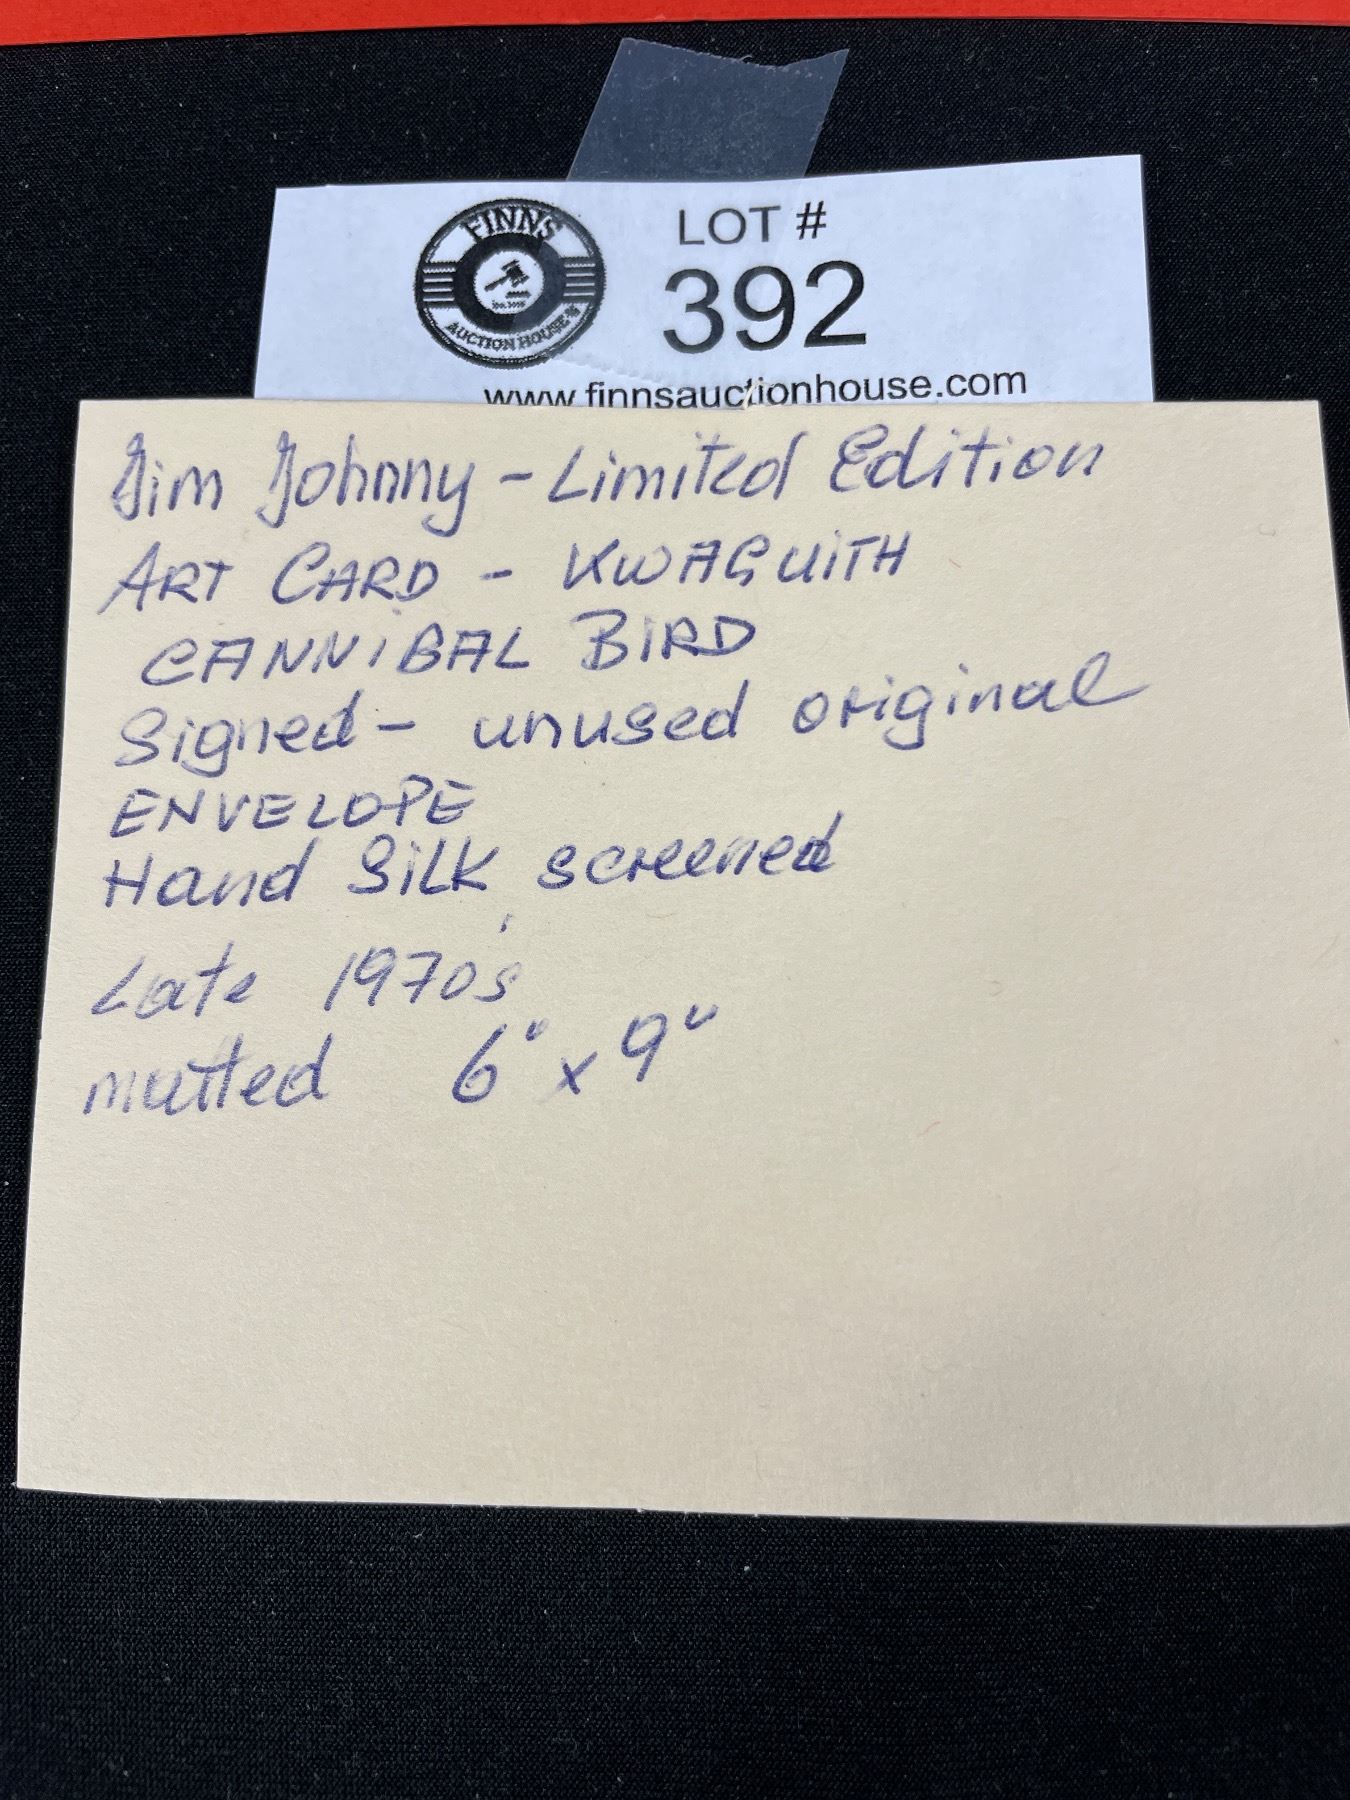 FINNS
AUCTION HOUSE
LOT #
392
www.finnsauctionhouse.com
Jim Johnny - Limited Edition
ART CARD - KWAGUITH
CANNIBAL BIRD
Signed - unused original
ENVELOPE
Hand SiLK screened
Late 1970's
matted 6" x 9"